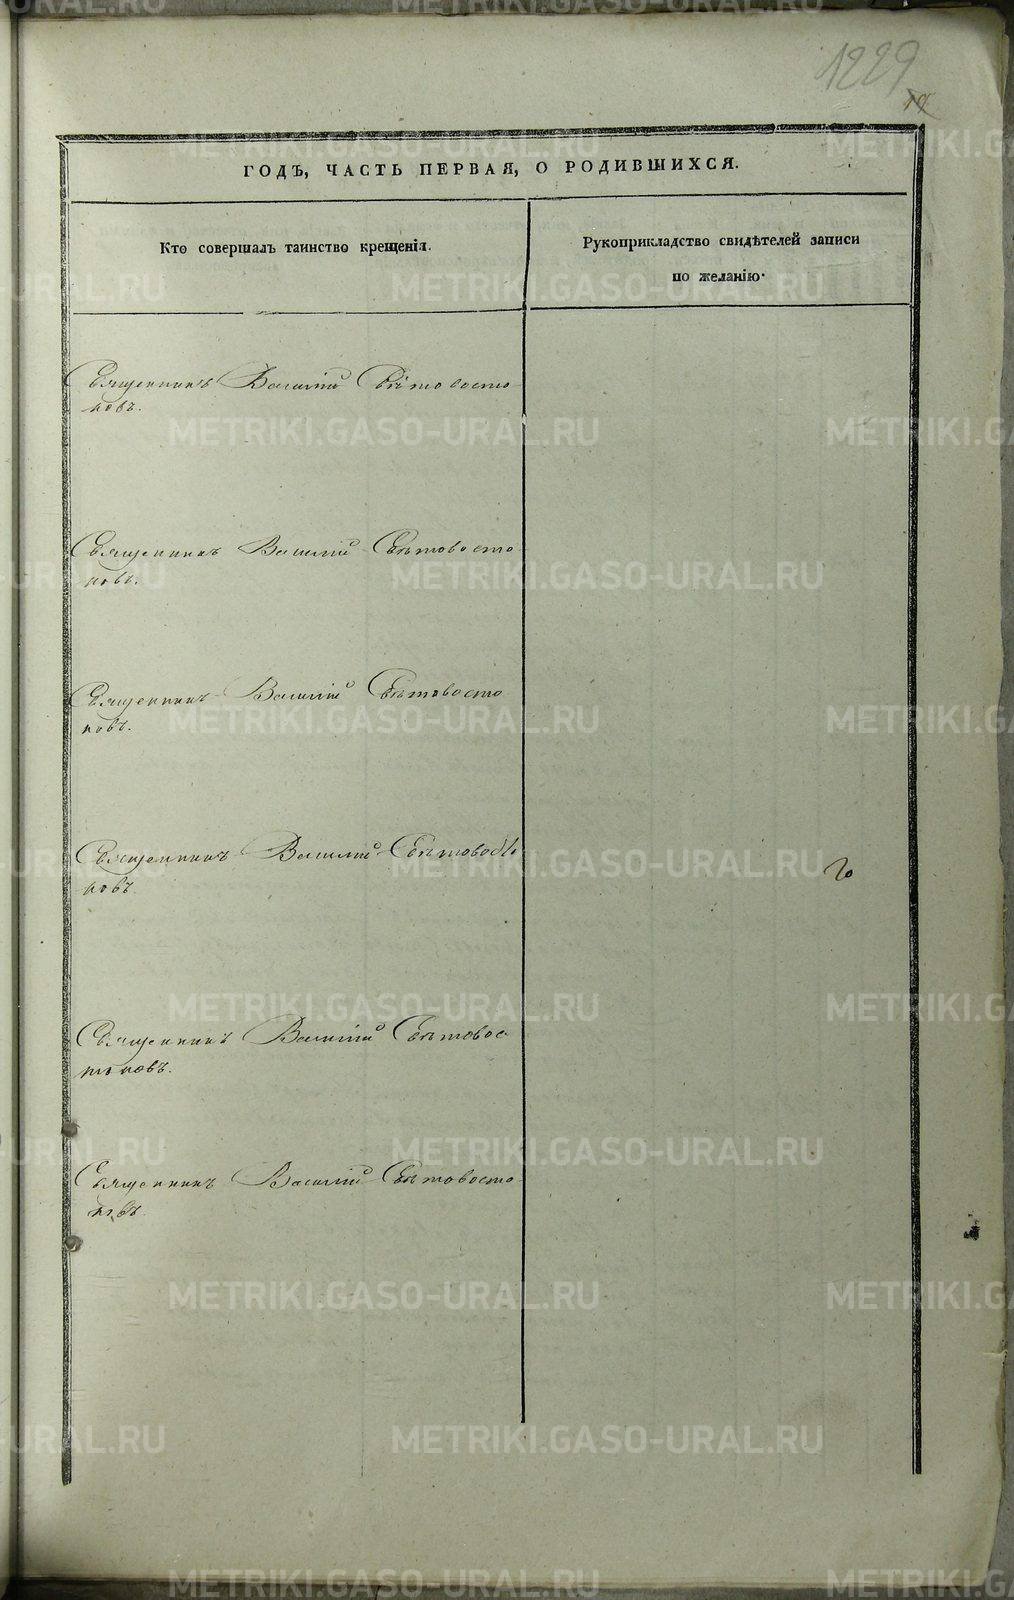 1229
ГОДЪ, ЧАСТЬ ПЕРВАЯ, О РОДИВШИХСЯ.
Кто совершалъ таинство крещенія.
Рукоприкладство свидѣтелей записи
по желанію.
Священникъ Василій Свѣтовосто-
ковъ.
Священникъ Василій Свѣтовосто-
ковъ.
Священникъ Василій Свѣтовосто
ковъ.
Священникъ Василій Свѣтовосто
ковъ
го
Священникъ Василій Свѣтовос
токовъ.
Священникъ Василій Свѣтовосто
ковъ.
METRIKI.GASO-URAL.RU